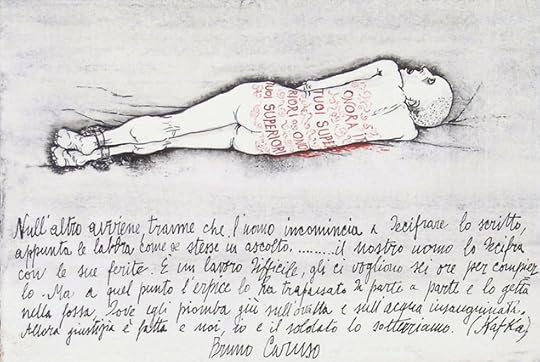 ONORA I
TUOI SUPE
RIORI ONO
TUOI SUPERIORI
Null'altro avviene, tranne che l'uomo incomincia a decifrare lo scritto,
appunta le labbra come se stesse in ascolto. ......... il nostro uomo lo decifra
con le sue ferite. È un lavoro difficile, gli ci vogliono sei ore per compier
lo. Ma a quel punto l'erpice lo ha trapassato da parte a parte e lo getta
nella fossa, dove egli piomba giù sull'ovatta e sull'acqua insanguinata.
Allora giustizia è fatta e noi, io e il soldato lo sotterriamo. (Kafka)
Bruno Caruso